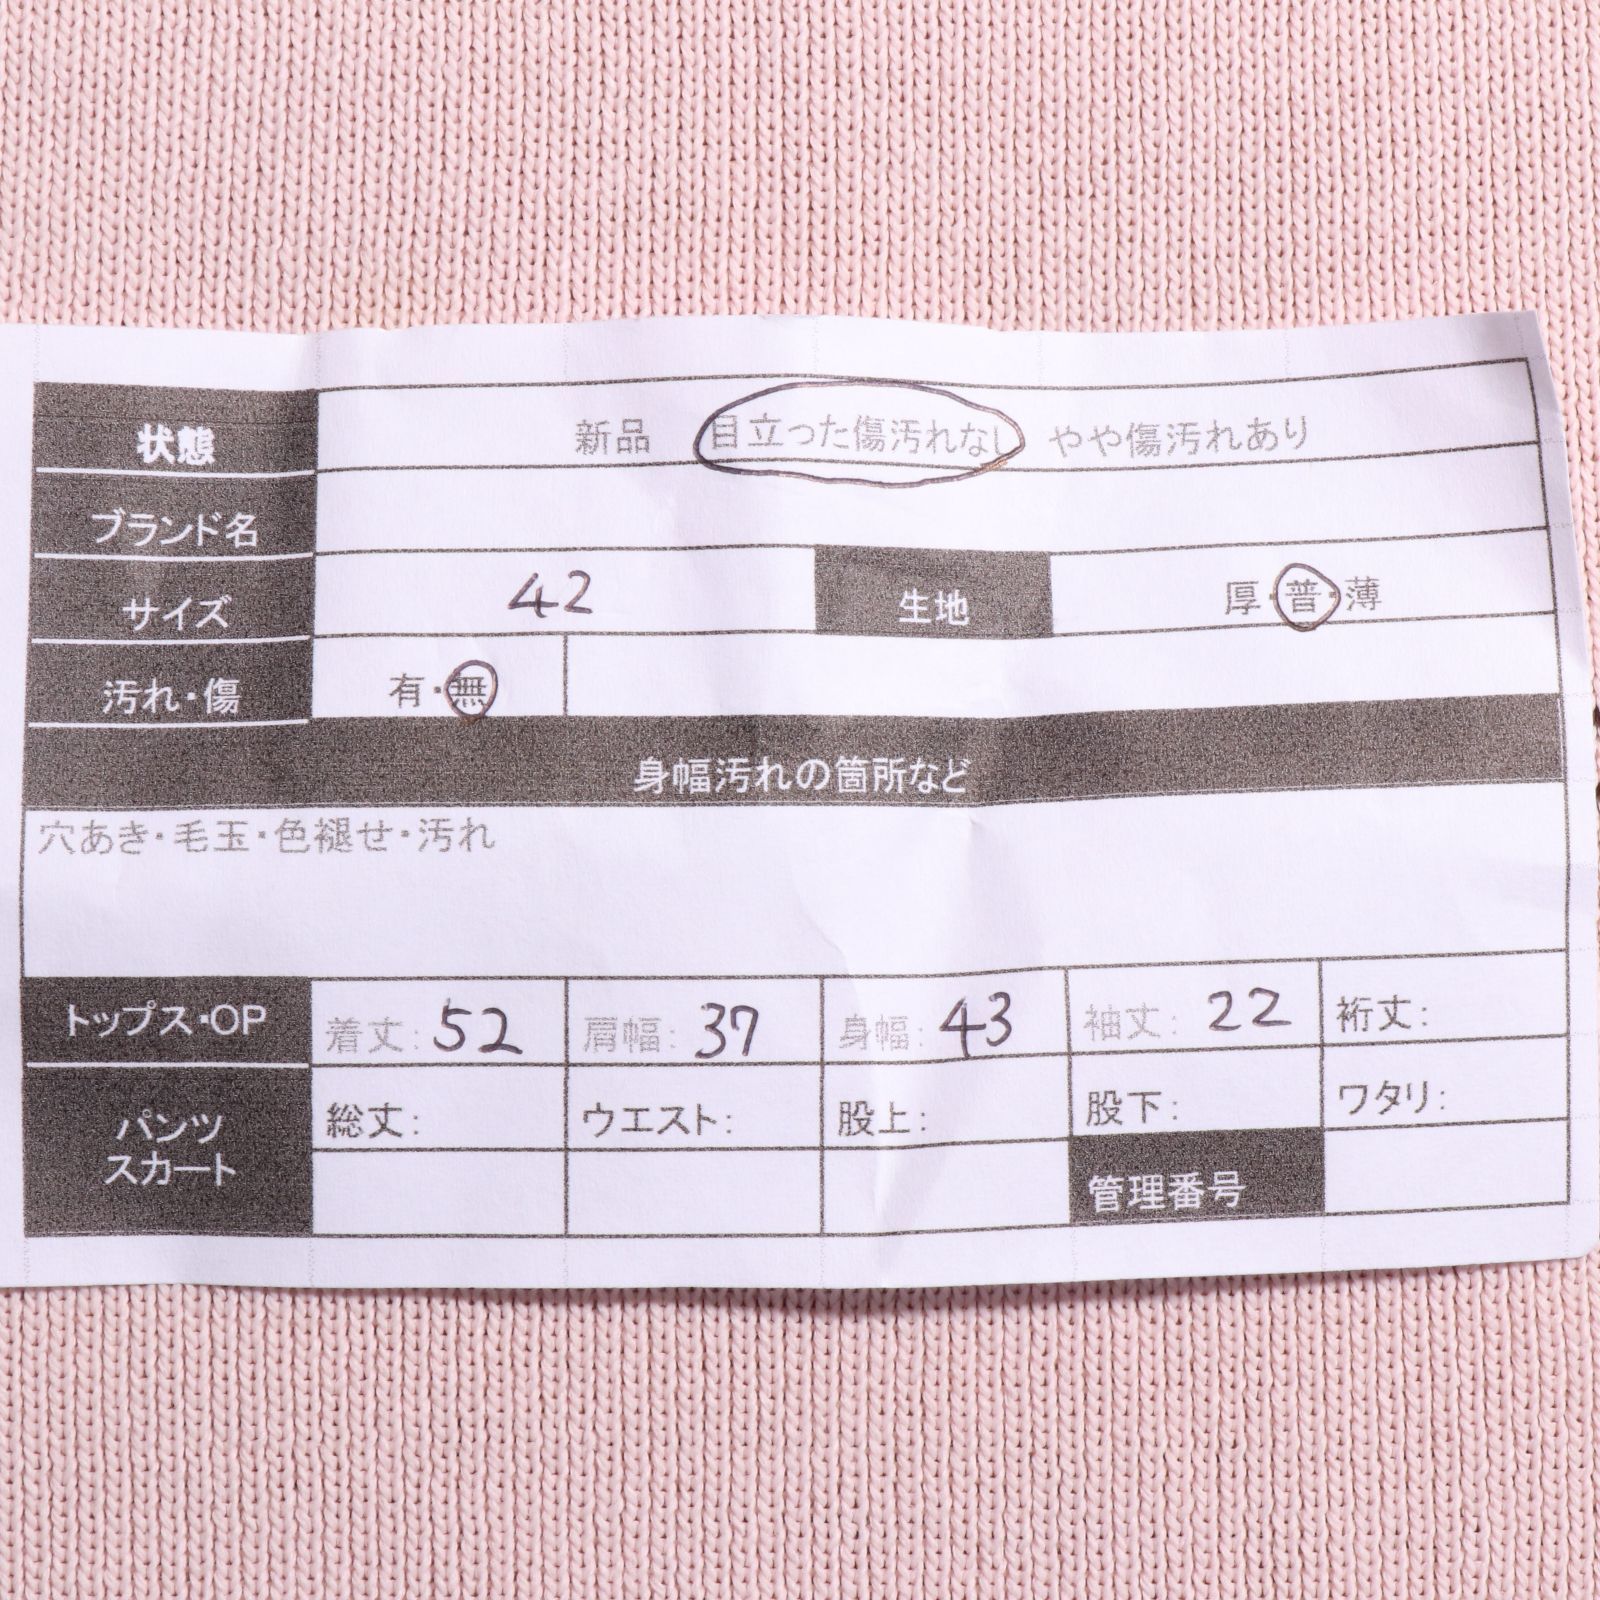 状態 新品 目立った傷汚れなし やや傷汚れあり
ブランド名
サイズ 42 生地 厚・普・薄
汚れ・傷 有・無
身幅汚れの箇所など
穴あき・毛玉・色褪せ・汚れ
トップス・OP 着丈: 52 肩幅: 37 身幅: 43 袖丈: 22 裄丈:
パンツ
スカート
総丈: ウエスト: 股上: 股下: ワタリ:
管理番号